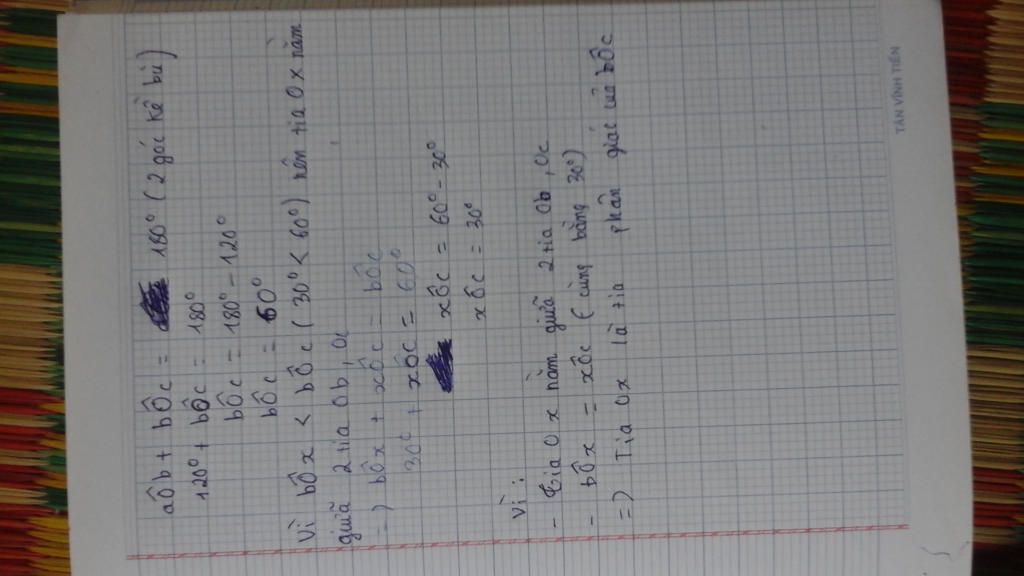 aÔb + bÔc = 180° (2 góc kề bù)
120° + bÔc = 180°
bÔc = 180° - 120°
bÔc = 60°
Vì bÔx < bÔc (30° < 60°) nên tia Ox nằm
giữa 2 tia Ob, Oc
=) bÔx + xÔc = bÔc
30° + xÔc = 60°
xÔc = 60° - 30°
xÔc = 30°
Vì :
- Tia Ox nằm giữa 2 tia Ob, Oc
- bÔx = xÔc (cùng bằng 30°)
=) Tia Ox là tia phân giác của bÔc
TÂN VĨNH TIẾN